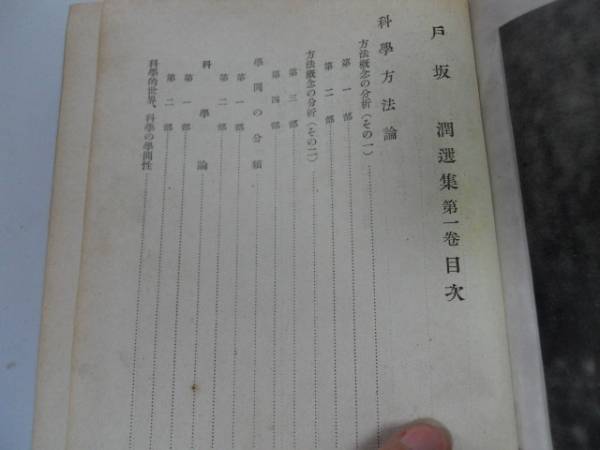 戶坂潤選集第一卷目次
科學方法論
方法槪念の分析(その一)
第一部
第二部
方法槪念の分析(その二)
第三部
第四部
學問の分類
第一部
第二部
科學論
第一部
第二部
科學的世界、科學の學問性